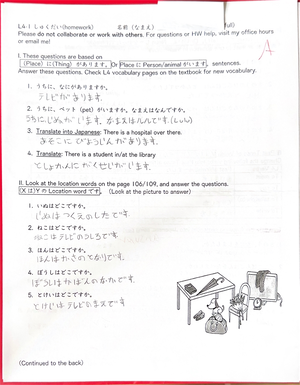 L4-1 しゅくだい(homework) 名前 (なまえ) (full)
Please do not collaborate or work with others. For questions or HW help, visit my office hours
or email me!
A
I. These questions are based on
(Place) に (Thing) があります。 Or Place に Person/animal がいます。 sentences.
Answer these questions. Check L4 vocabulary pages on the textbook for new vocabulary.
1. うちに、なにがありますか。
テレビがあります。
2. うちに、ペット (pet) がいますか。なまえはなんですか。
うちに
います。なまえは
です。
3. Translate into Japanese: There is a hospital over there.
あそこにびょういんがあります。
4. Translate: There is a student in/at the library
としょかんにがくせいがいます。
II. Look at the location words on the page 106/109, and answer the questions.
(X は) Y の Location word です。 (Look at the picture to answer)
1. いぬはどこですか。
はつくえのしたです。
2. ねこはどこですか。
ねこはテレビのうしろです。
3. ほんはどこですか。
ほんはかさのとなりです。
4. ぼうしはどこですか。
ぼうしはかばんのなかです。
5. とけいはどこですか。
とけいはテレビのまえです
(Continued to the back)